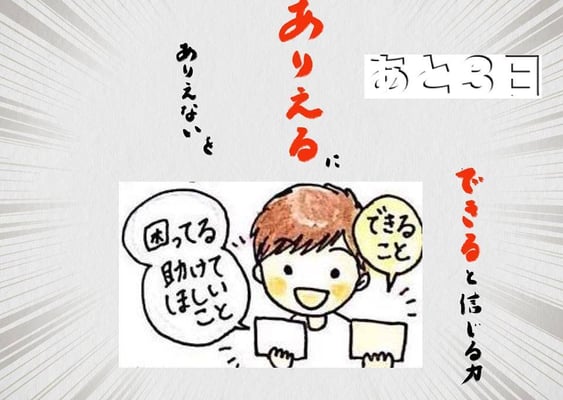 あと3日
できると信じる力
ありえないと
ありえるに
困ってる
助けて
ほしい
こと
できる
こと